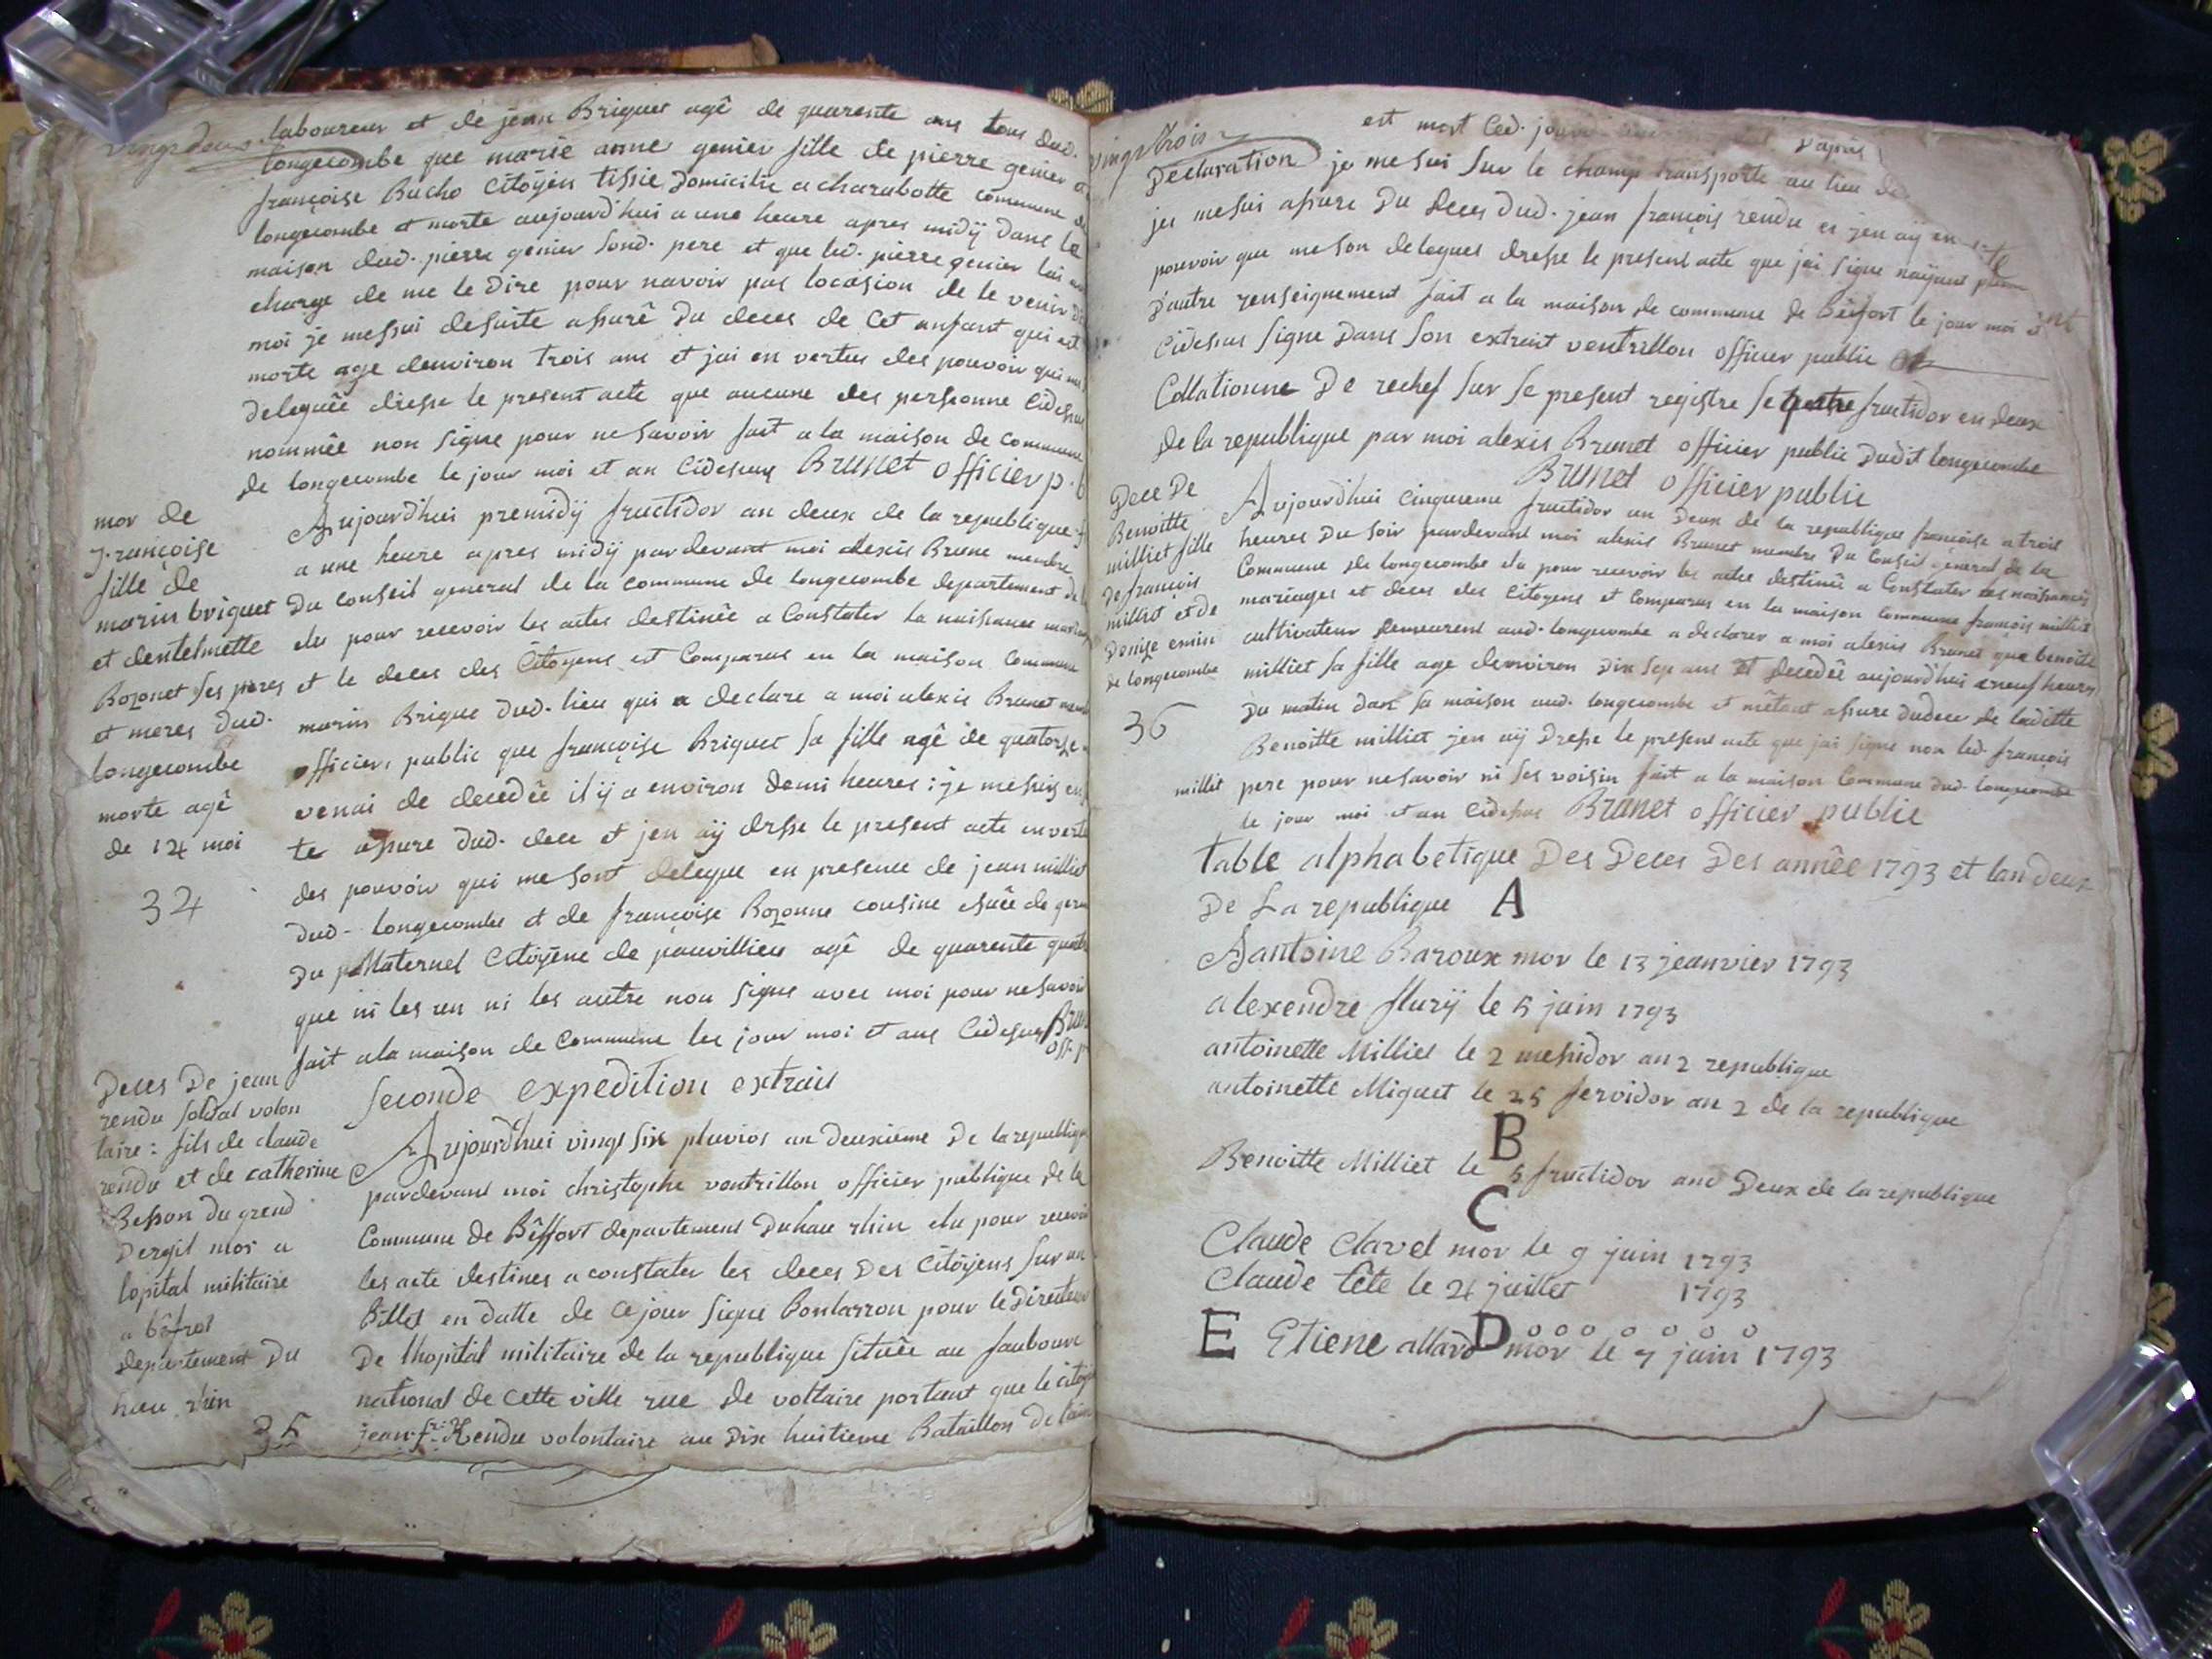 vingt deux
laboureur et de jean Briquet agê de quarente ans tous dud.
longecombe que marie anne genier fille de pierre genier
françoise Bucho Citoÿen tissie Domicilie a charabotte commune
longecombe et morte aujourd'hui a une heure apres midÿ dans la
maison dud. pierre genier Sond. pere et que led. pierre genier lui
charge de me le Dire pour navoir pas locasion de le venir
moi je messui desuite assurê Du deces de Cet anfant qui est
morte age denviron trois ans et jai en vertus des pouvoir qui
deleguêe dresse le present acte que aucune des personne Cidessus
nommêe non Signe pour ne Savoir fait a la maison de commune
de longecombe le jour moi et an Cidessus Brunet officier p.
mor de
françoise
fille de
marin briquet
et dentelmette
Bozonet Ses peres
et meres dud.
longecombe
morte agê
de 14 moi
34
Aujourd'hui premidÿ fructidor an deux de la republique
a une heure apres midÿ pardevant moi alexis Brune membre
Du conseil general de la commune de longecombe departement de
elu pour recevoir les actes destinêe a Constater la naissance
et le deces des Citoyens est Comparus en la maison Commune
marin Brique Dud. lieu qui a declare a moi alexis Brunet
officier public que françoise Briquet Sa fille agê de quatorse
venai de decedêe il ÿ a environ Demi heures : je messuis
te assure Dud. dece et jen aÿ dresse le present acte en
des pouvoir qui me sont delegue en presence de jean milliet
Dud. longecombe et de françoise Bozonne cousine
Du Maternel Citoÿene de agê de quarente
que ni les un ni les autre non Signe avec moi pour ne Savoir
fait a la maison de Commune les jour moi et ans Cidessus
Deces De jean
rendu Soldat volon
taire : fils de claude
rendu et de catherine
Besson du grend
Dergit mor a
lopital militaire
a
departement Du
hau rhin
35
Seconde expedition extrait
Aujourd'hui vingt Six pluvios an Deuxieme De la republique
pardevant moi christophe ventrillon officier publique de la
Commune de Bêffort departement Duhau rhin elu pour recevoir
les acte destines a constater les deces Des Citoÿens Sur un
Billet en datte de Ce jour Signe pour le Directeur
De lhopital militaire de la republique Situêe au faubourc
national de cette ville rue de voltaire portant que le
jean fr. Rendu volontaire au Dix huitieme Bataillon De
vingt trois
est mort led. jour
D'après
Declaration je me Sui Sur le champ transporte au lieu
je me Sui assure Du deces Dud. jean françois rendu et jen aÿ en
pouvoir que me Son delegues dresse le present acte que jai Signe naÿant
Dautre renseignement fait a la maison de commune de Bêfort le jour moi
Cidessus Signe Dans Son extrait ventrillon officier public
Collationne De rechef Sur Se present registre Se fructidor en deux
de la republique par moi alexis Brunet officier public Dudit longecombe
Brunet officier public
Dece De
Benoitte
milliet fille
de francois
milliet et de
Denise emin
de longecombe
36
Aujourd'hui Cinquieme fructidor an Deux de la republique françoise a trois
heures Du Soir pardevant moi alexis Brunet membre Du Conseil general de la
Commune de longecombe elu pour recevoir les actes destinêe a Constater les naissances
mariages et deces des Citoyens et Comparus en la maison Commune françois milliet
cultivateur Demeurent aud. longecombe a declarer a moi alexis Brunet que benoite
milliet Sa fille age denviron Dix Sep ans et Decedêe aujourd'hui a neuf heures
Du matin dans Sa maison aud. longecombe et mêtant assure du dece de ladite
Benoitte milliet jen aÿ Dresse le present acte que jai Signe non led. françois
milliet pere pour ne Savoir ni Ses voisin fait a la maison Commune dud. longecombe
le jour moi et an Cidessus Brunet officier public
table alphabetique Des Deces Des annêe 1793 et lan deux
De La republique A
Aantoine Baroux mor le 13 jeanvier 1793
alexendre flurÿ le 5 juin 1793
antoinette Milliet le 2 messidor an 2 republique
antoinette Miguet le 25 fervidor an 2 de la republique
B
Benoitte Milliet le 5 fructidor and Deux de la republique
C
Claude Clavel mor le 9 juin 1793
Claude têté le 24 juillet 1793
D o o o o o o o
E Etiene allard mor le 7 juin 1793